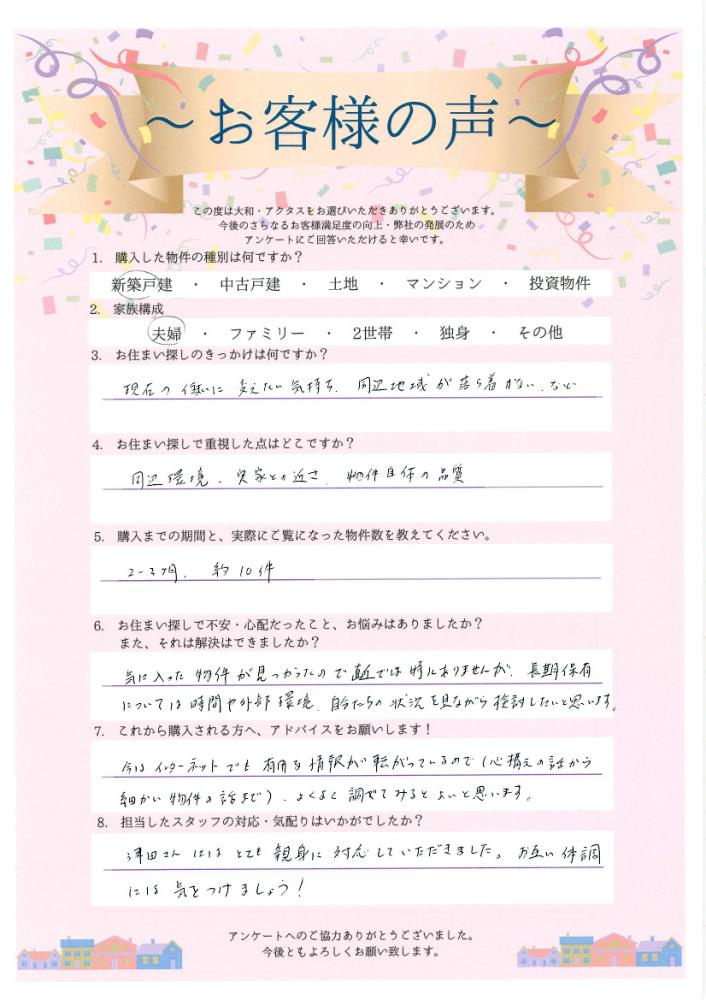 ～お客様の声～
この度は大和・アクタスをお選びいただきありがとうございます。
今後のさらなるお客様満足度の向上・弊社の発展のため
アンケートにご回答いただけると幸いです。
1. 購入した物件の種別は何ですか？
新築戸建 ・ 中古戸建 ・ 土地 ・ マンション ・ 投資物件
2. 家族構成
夫婦 ・ ファミリー ・ 2世帯 ・ 独身 ・ その他
3. お住まい探しのきっかけは何ですか？
現在の 住いに 変えたい 気持ち、周辺地域が 落ち着かない、など
4. お住まい探しで重視した点はどこですか？
周辺環境、実家との近さ、物件自体の品質
5. 購入までの期間と、実際にご覧になった物件数を教えてください。
2-3ヶ月、約10件
6. お住まい探しで不安・心配だったこと、お悩みはありましたか？
また、それは解決はできましたか？
気に入った物件が見つかったので直近では特にありませんが、長期保有
については時間や外部環境、自分たちの状況を見ながら検討したいと思います。
7. これから購入される方へ、アドバイスをお願いします！
今はインターネットでも有用な情報が転がっているので（心構えの話から
細かい物件の話まで）、よくよく調べてみるとよいと思います。
8. 担当したスタッフの対応・気配りはいかがでしたか？
さんにはとても親身に対応していただきました。お互い体調
には気をつけましょう！
アンケートへのご協力ありがとうございました。
今後ともよろしくお願い致します。